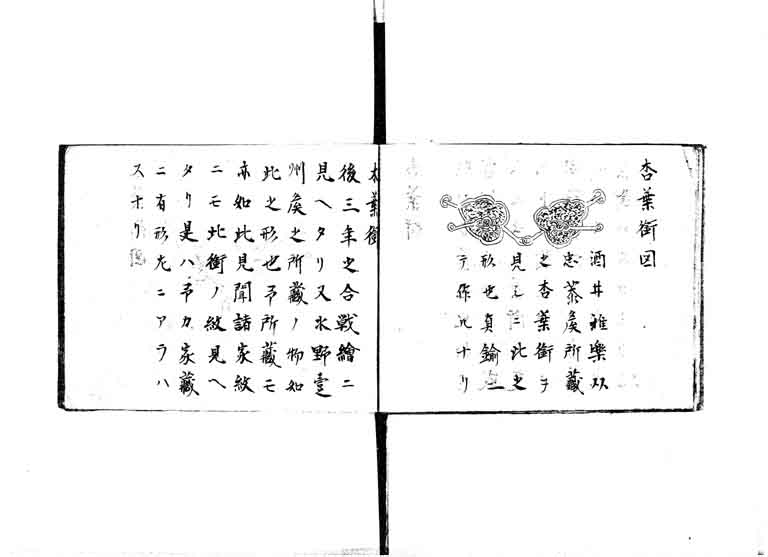 杏葉銜図
酒井雅樂以
忠恭矦所蔵
之杏葉銜ヲ
見ルニ此之
形也真鍮ニ
テ作ルナリ
杏葉銜
後三年之合戦繪ニ
見ヘタリ又水野壹
州矦之所蔵ノ物如
此之形也予所蔵モ
亦如此見聞諸家紋
ニモ此銜ノ紋見ヘ
タリ是ハ予カ家蔵
ニ有形左ニアラハ
スナリ